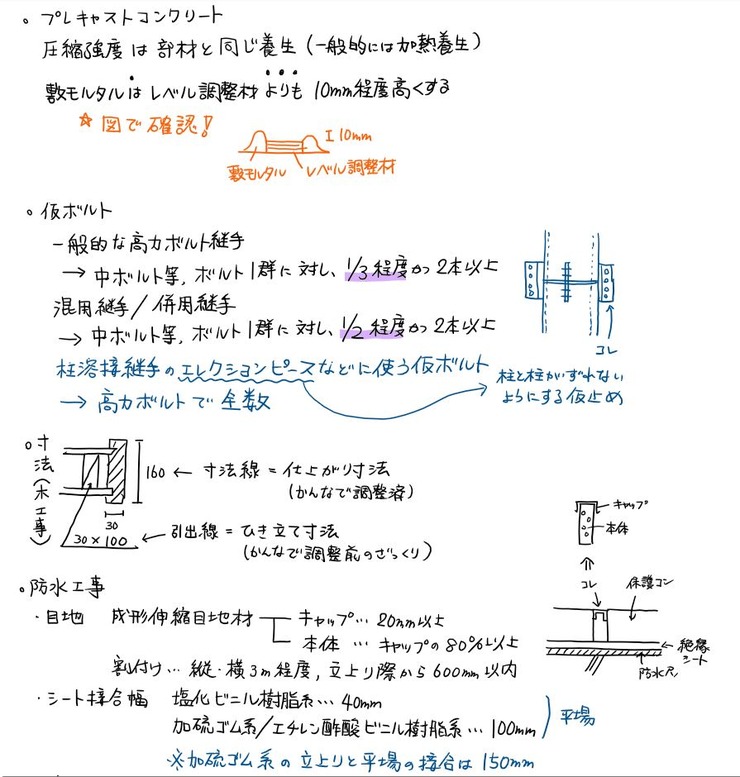 。プレキャストコンクリート
圧縮強度は部材と同じ養生(一般的には加熱養生)
敷モルタルはレベル調整材よりも10mm程度高くする
☆ 図で確認!
10mm
敷モルタル レベル調整材
。仮ボルト
一般的な高力ボルト継手
→ 中ボルト等,ボルト1群に対し、1/3程度かつ2本以上
混用継手/併用継手
→ 中ボルト等,ボルト1群に対し、1/2程度かつ2本以上
コレ
柱溶接継手のエレクションピースなどに使う仮ボルト
→ 高力ボルトで全数
柱と柱がずれない
ようにする仮止め
。寸法(木工事)
160 ← 寸法線 = 仕上がり寸法
(かんなで調整済)
30
30×100 ← 引出線 = ひき立て寸法
(かんなで調整前のざっくり)
キャップ
本体
コレ
保護コン
絶縁
シート
防水层
。防水工事
・目地 成形伸縮目地材 キャップ… 20mm以上
本体 … キャップの80%以上
割付け… 縦・横3m程度,立上り際から600mm以内
・シート接合幅 塩化ビニル樹脂系… 40mm
加硫ゴム系/エチレン酢酸ビニル樹脂系… 100mm
平場
※加硫ゴム系の立上りと平場の接合は150mm